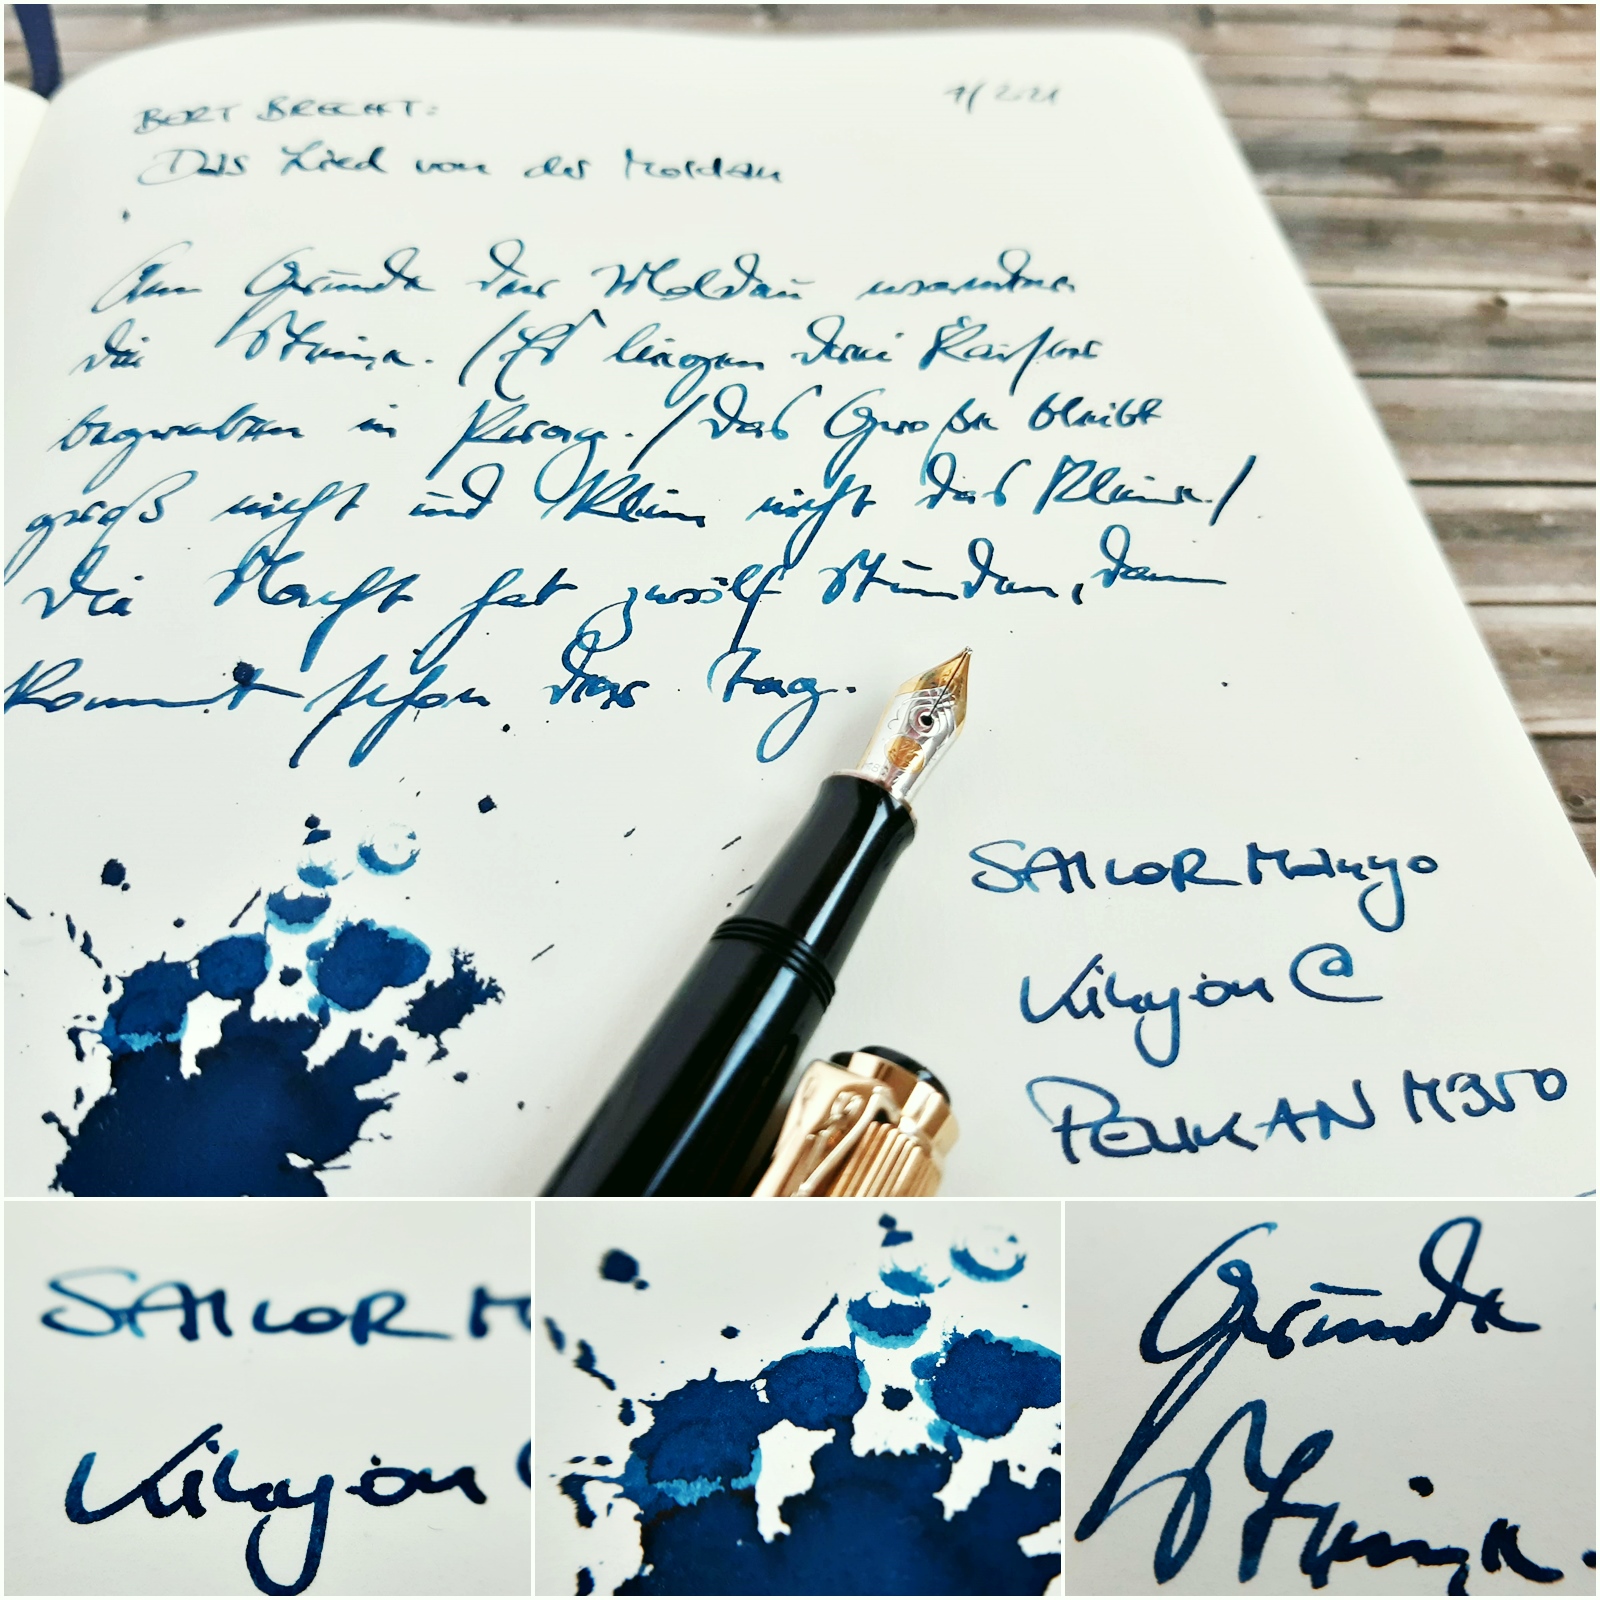 BERT BRECHT:
Das Lied von der Moldau
Am Grunde der Moldau wandern
die Steine. / Es liegen drei Kaiser
begraben in Prag. / Das Große bleibt
groß nicht und Klein nicht das Kleine. /
Die Nacht hat zwölf Stunden, dann
kommt schon der Tag.
SAILOR Manyo
Kikyou @
PELIKAN M350
SAILOR M
Kikyou
Grunde
Steine.